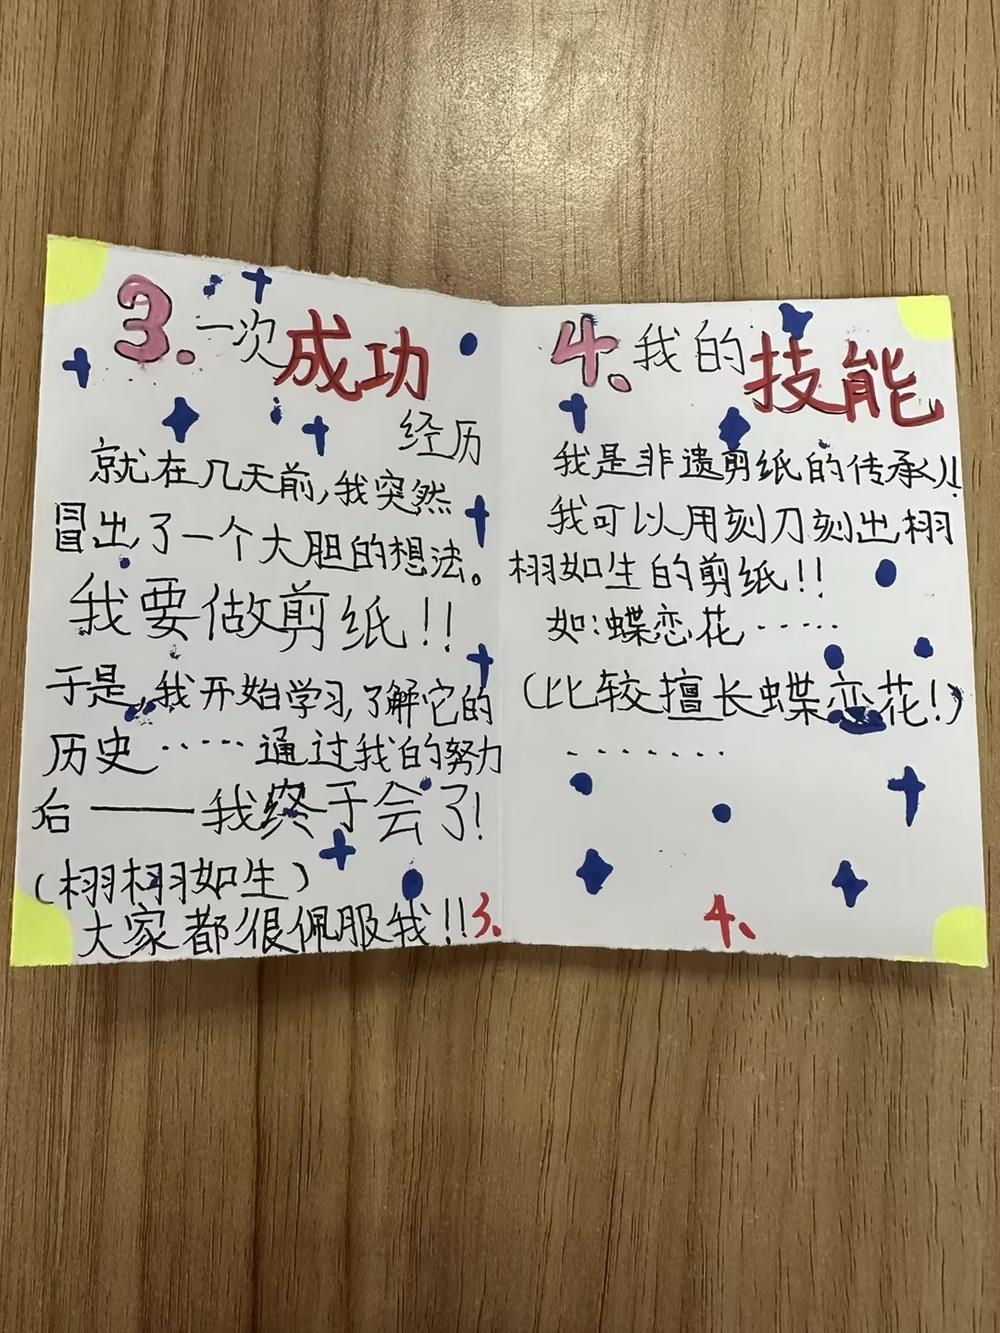 3.一次成功
经历
就在几天前,我突然
冒出了一个大胆的想法。
我要做剪纸!!
于是,我开始学习,了解它的
历史……通过我的努力
后——我终于会了!
(栩栩如生)
大家都很佩服我!!
3.
4.我的技能
我是非遗剪纸的传承人!
我可以用刻刀刻出栩
栩如生的剪纸!!
如:蝶恋花……
(比较擅长蝶恋花!)
.......
4.